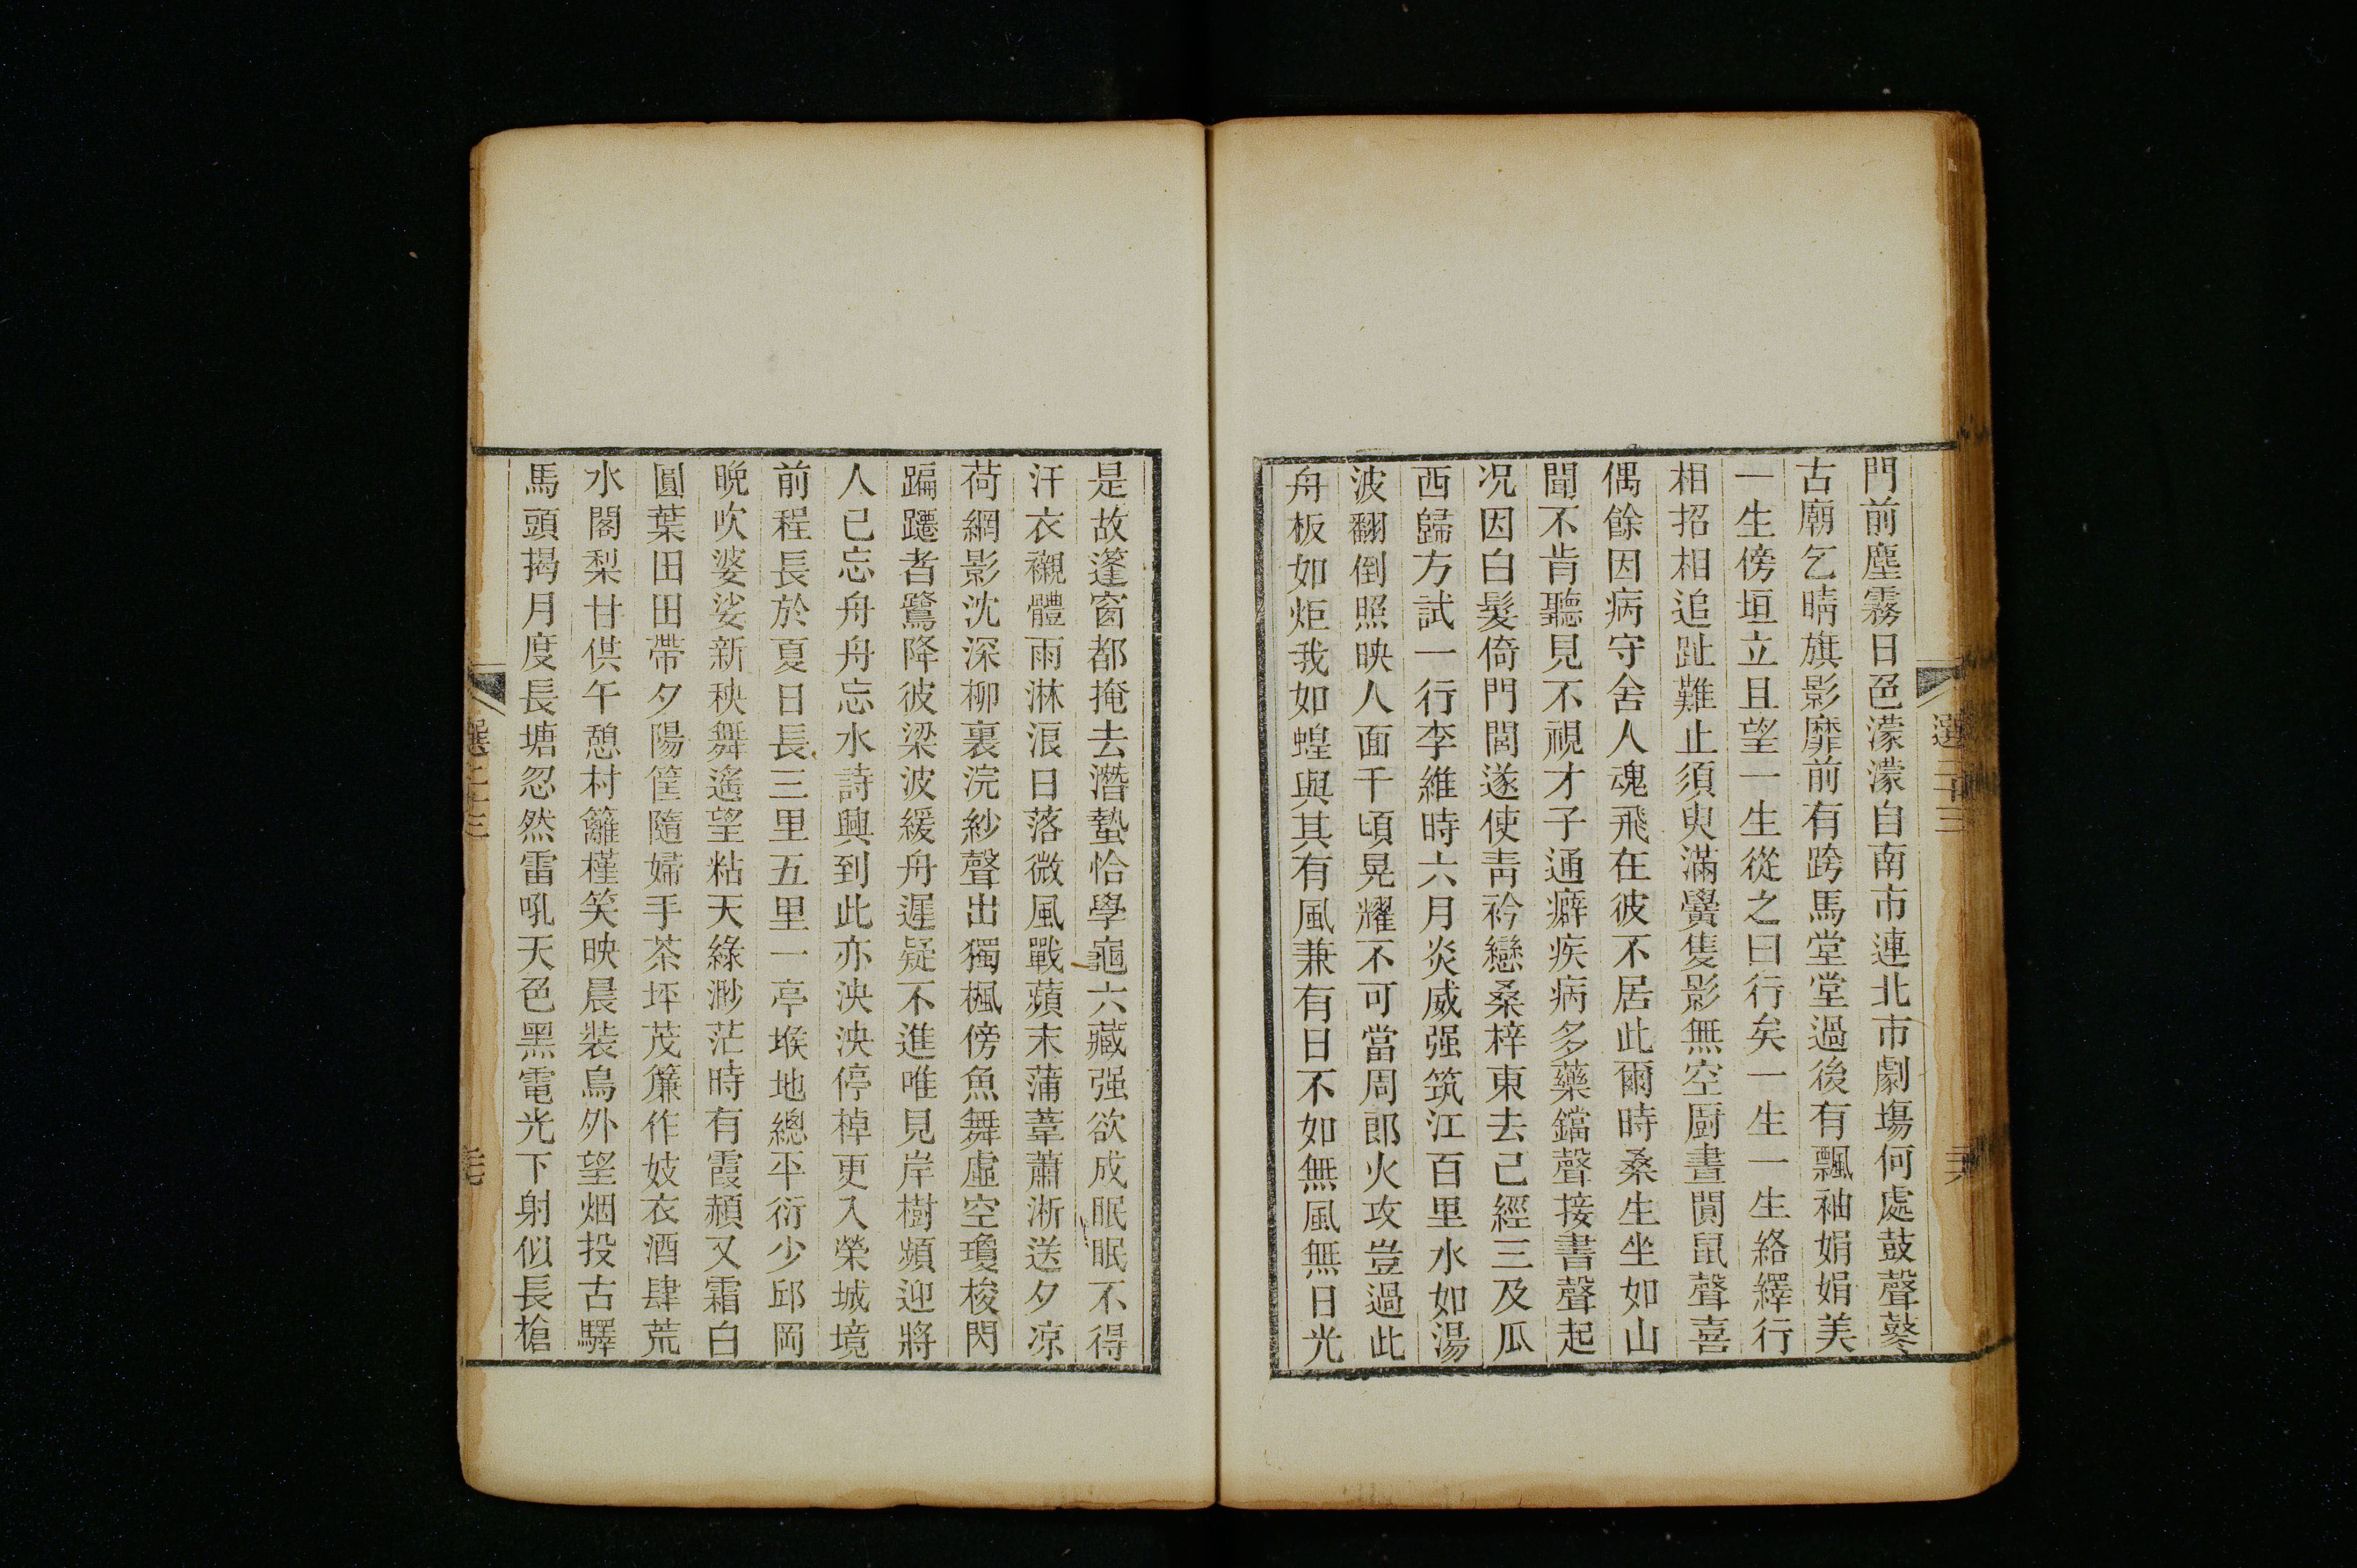 門前塵霧日色濛濛自南市連北市劇塲何處鼓聲鼕
古廟乞晴旗影靡前有跨馬堂堂過後有飄袖娟娟美
一生傍垣立且望一生從之曰行矣一生一生絡繹行
相招相追趾難止須臾滿黌隻影無空厨晝閴鼠聲喜
偶餘因病守舍人魂飛在彼不居此爾時桑生坐如山
聞不肯聽見不視才子通癖疾病多藥鐺聲接書聲起
况因白髮倚門閭遂使靑衿戀桑梓東去己經三及瓜
西歸方試一行李維時六月炎威强筑江百里水如湯
波翻倒照映人面千頃晃耀不可當周郎火攻豈過此
舟板如炬我如蝗與其有風兼有日不如無風無日光
是故蓬窗都掩去潛蟄恰學龜六藏强欲成眠眠不得
汗衣襯體雨淋浪日落微風戰蘋末蒲葦蕭淅送夕凉
荷網影沈深柳裏浣紗聲出獨楓傍魚舞虛空瓊梭閃
蹁躚者鷺降彼梁波緩舟遲疑不進唯見岸樹頻迎將
人已忘舟舟忘水詩興到此亦泱泱停棹更入榮城境
前程長於夏日長三里五里一亭堠地總平衍少邱岡
晩吹婆娑新秧舞遙望粘天綠渺茫時有霞頳又霜白
圓葉田田帶夕陽筐隨婦手茶坪茂簾作妓衣酒肆荒
水閣梨甘供午憩村籬槿笑映晨裝鳥外望烟投古驛
馬頭揭月度長塘忽然雷吼天色黑電光下射似長槍